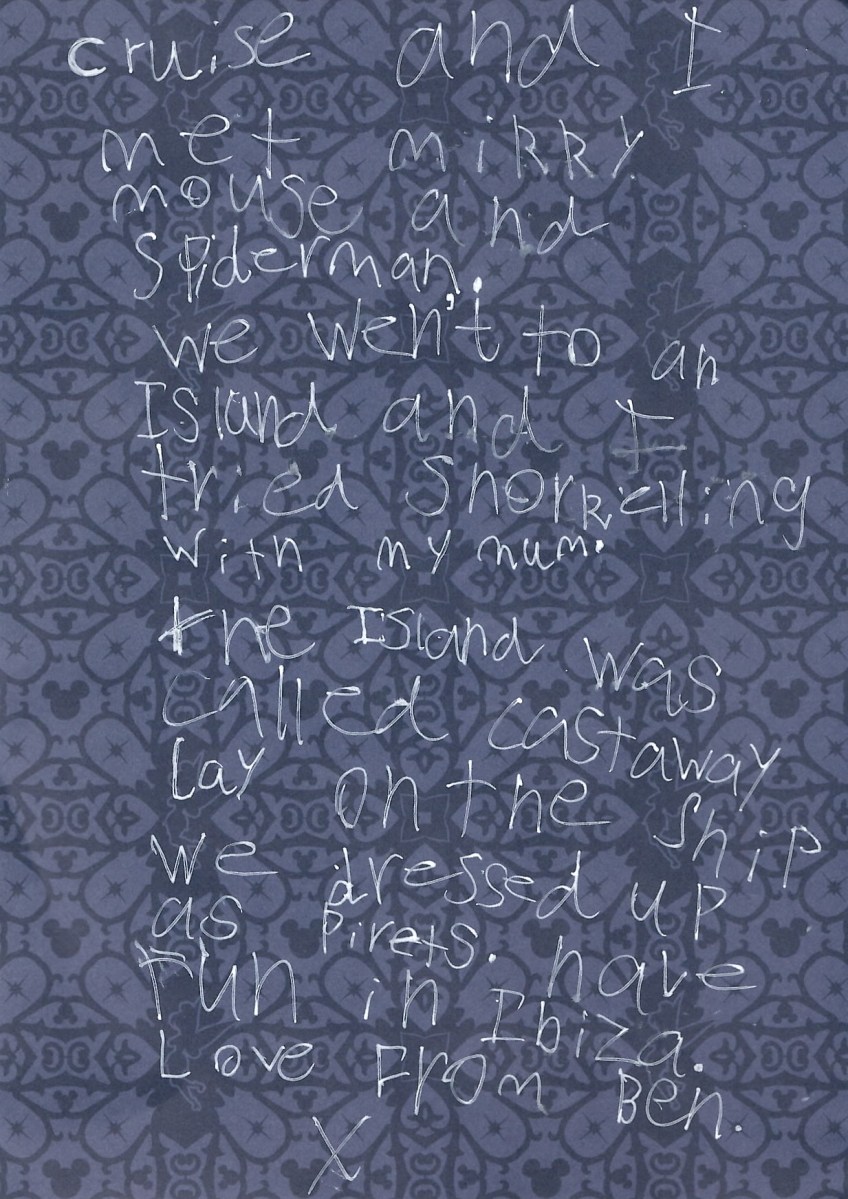 cruise and I
met miRRy
mouse and
Spiderman.
we wen't to an
Island and I
tried Snorkelling
with my mum.
the Island was
called castaway
Cay on the Ship
we dressed up
as Pirets. have
Fun in Ibiza.
Love From Ben.
X